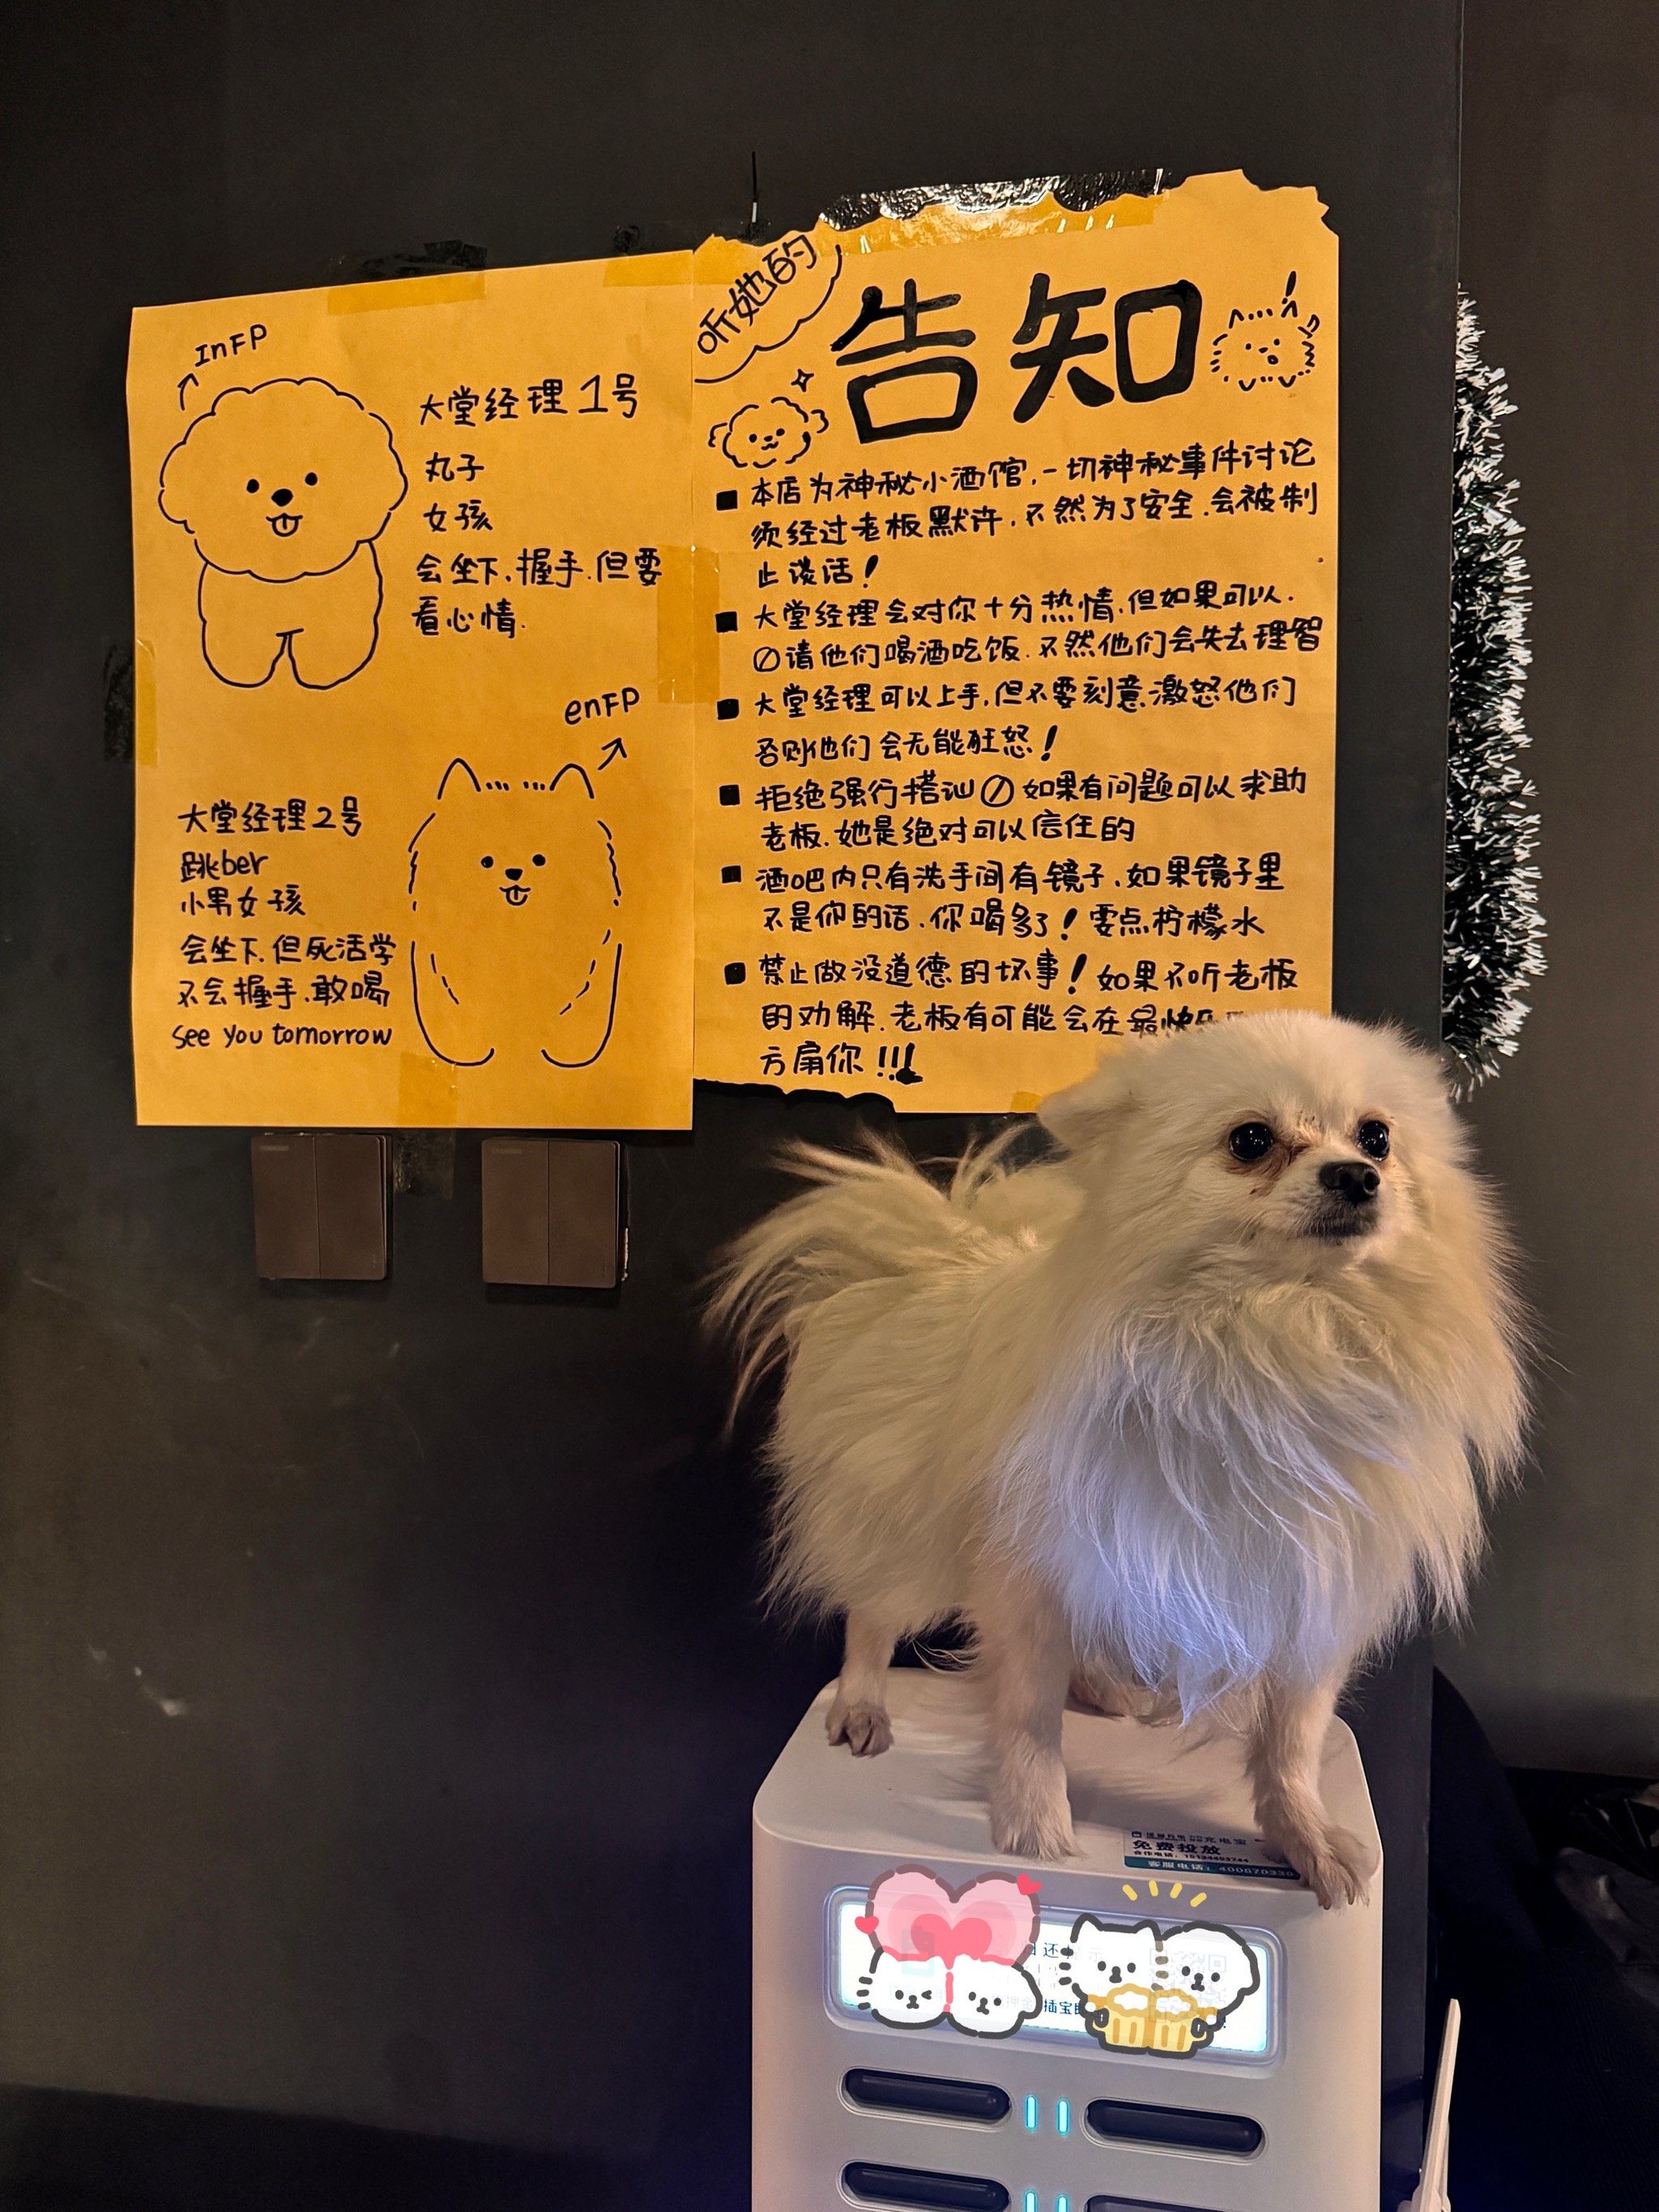 InFP
大堂经理1号
丸子
女孩
会坐下.握手.但要
看心情.
enFP
大堂经理2号
跳ber
小男女孩
会坐下.但死活学
不会握手.敢喝
see you tomorrow
听她的
告知
本店为神秘小酒馆,一切神秘事件讨论
须经过老板默许,不然为了安全.会被制
止谈话!
大堂经理会对你十分热情,但如果可以.
请他们喝酒吃饭.不然他们会失去理智
大堂经理可以上手,但不要刻意激怒他们
否则他们会无能狂怒!
拒绝强行搭讪 如果有问题可以求助
老板.她是绝对可以信任的
酒吧内只有洗手间有镜子,如果镜子里
不是你的话,你喝多了!要点柠檬水
禁止做没道德的坏事!如果不听老板
的劝解.老板有可能会在最快
方扇你!!!
充电宝
免费投放
客服电话: